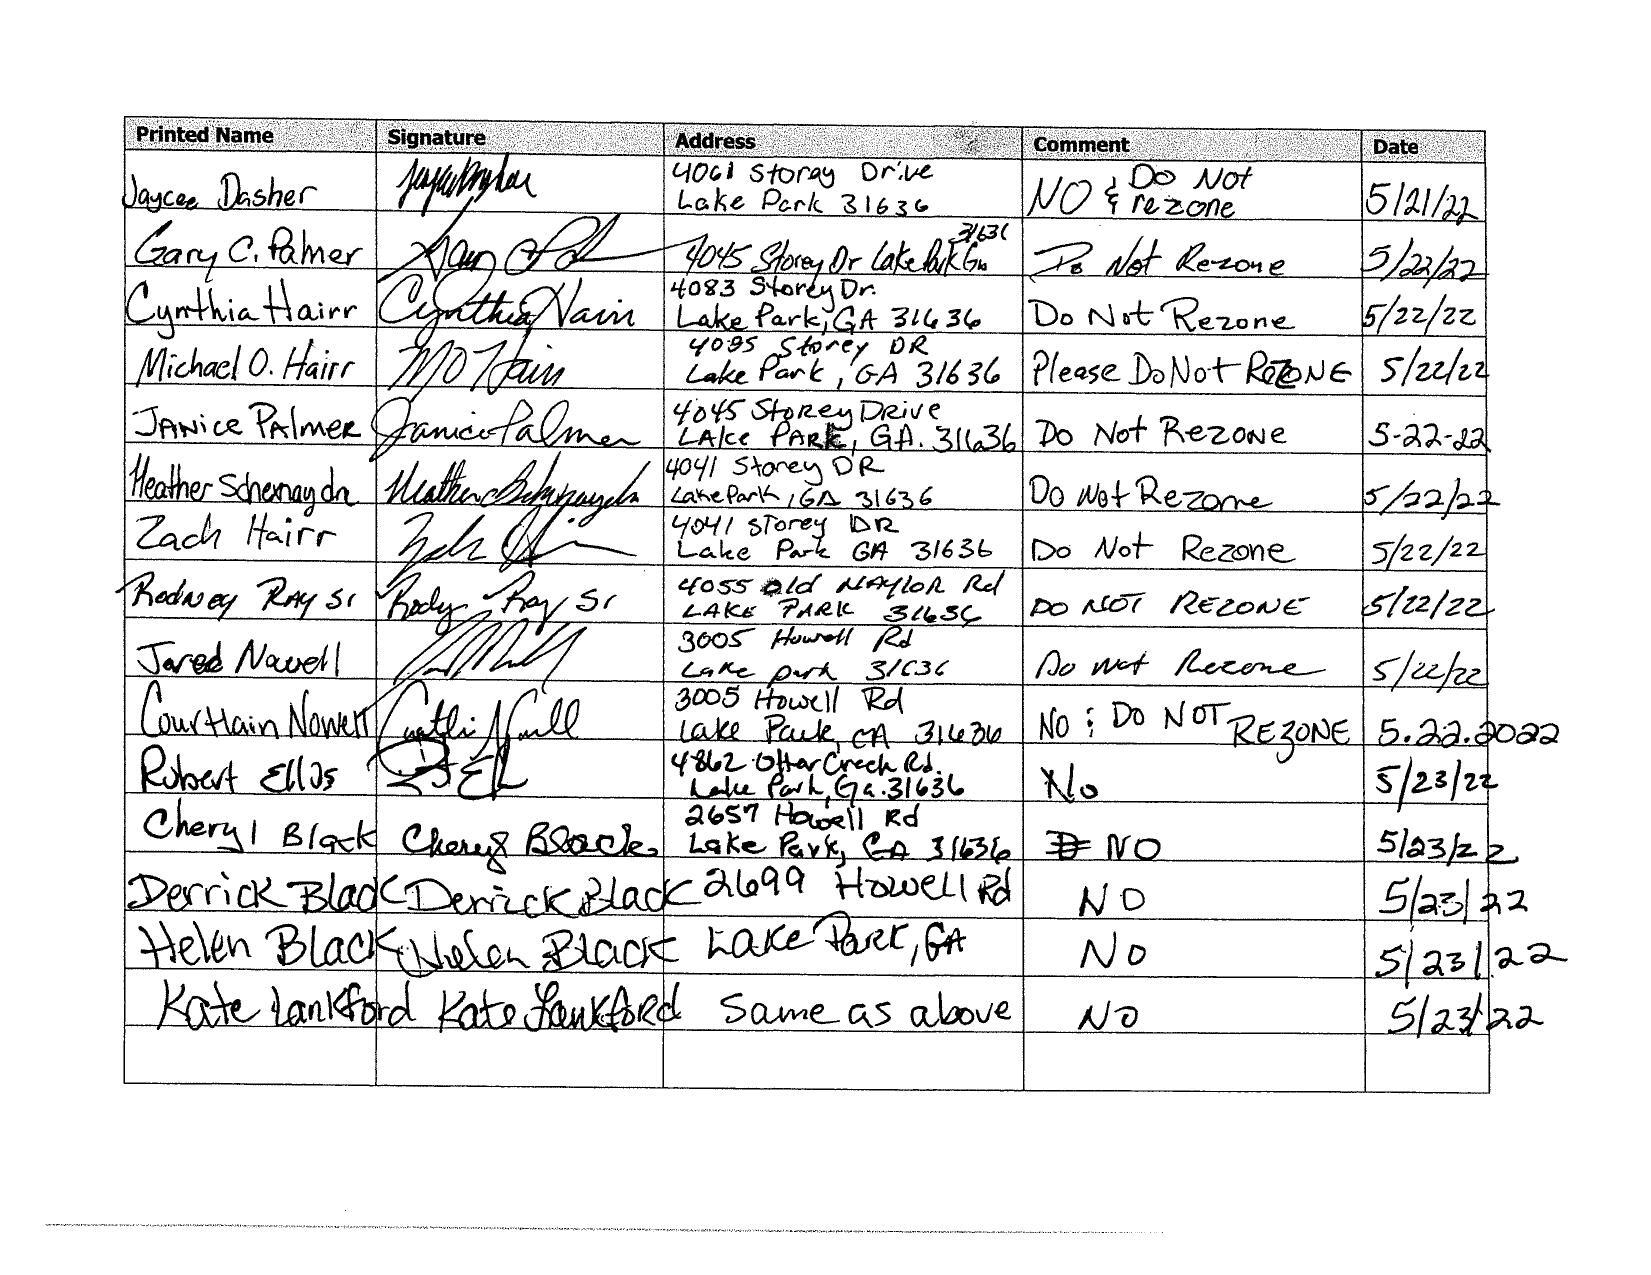 Printed Name Signature Address Comment Date
4061 Storey Drive Do Not
Jaycee Dasher Lake Park 31636 NO & rezone 5/21/22
31636
Gary C. Palmer 4045 Storey Dr Lake Park Ga Do Not Rezone 5/22/22
4083 Storey Dr.
Cynthia Hairr Cynthia Hairr Lake Park, GA 31636 Do Not Rezone 5/22/22
4085 Storey DR
Michael O. Hairr MO Hairr Lake Park, GA 31636 Please Do Not ReZONE 5/22/22
4045 Storey Drive
JANice PAlmer Janice Palmer LAke PARK, GA. 31636 Do Not Rezone 5-22-22
4041 Storey DR
Heather Schexnaydre Lake Park, GA 31636 Do Not Rezone 5/22/22
4041 Storey DR
Zach Hairr Lake Park GA 31636 Do Not Rezone 5/22/22
4055 old NAYloR Rd
Rodney RAY Sr Rodney Ray Sr LAKE PARK 31636 DO NOT REZONE 5/22/22
3005 Howell Rd
Jared Nowell Lake park 31636 Do Not Rezone 5/22/22
3005 Howell Rd
Courtlain Nowell Lake Park, GA 31636 NO : DO NOT REZONE 5.22.2022
4862 Otter Creek Rd.
Robert Ellis Lake Park, Ga. 31636 No 5/23/22
2657 Howell Rd
Cheryl Black Cheryl Black Lake Park, GA 31636 NO 5/23/22
Derrick Black Derrick Black 2699 Howell Rd NO 5/23/22
Helen Black Helen Black Lake Park, GA NO 5/23/22
Kate Lankford Kate Lankford Same as above NO 5/23/22